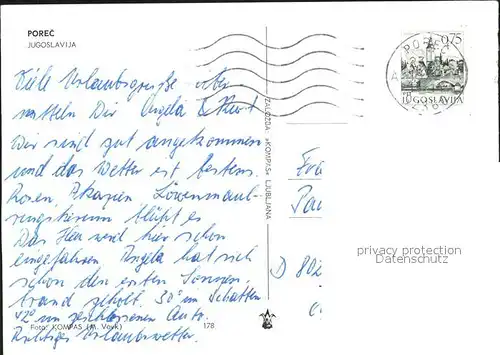 POREČ
JUGOSLAVIJA
Viele Urlaubsgrüße über
mitteln Dir Angela & Kurt
Wir sind gut angekommen
und das Wetter ist bestens.
Rosen, Akazien Löwenmaul-
blüht es
Das Heu wird hier schon
eingefahren Angela hat sich
schon den ersten Sonnen
brand geholt. 30° im Schatten
42° im geschlossenen Auto.
Richtiges Urlaubswetter.
Foto: KOMPAS (M. Vovk) 178
ZALOŽBA »KOMPAS« LJUBLJANA
0.75
JUGOSLAVIJA
POREČ
Fra
Pau
D 802
privacy protection
Datenschutz